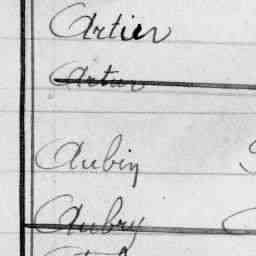 Artier
Artur
Aubin
Aubry